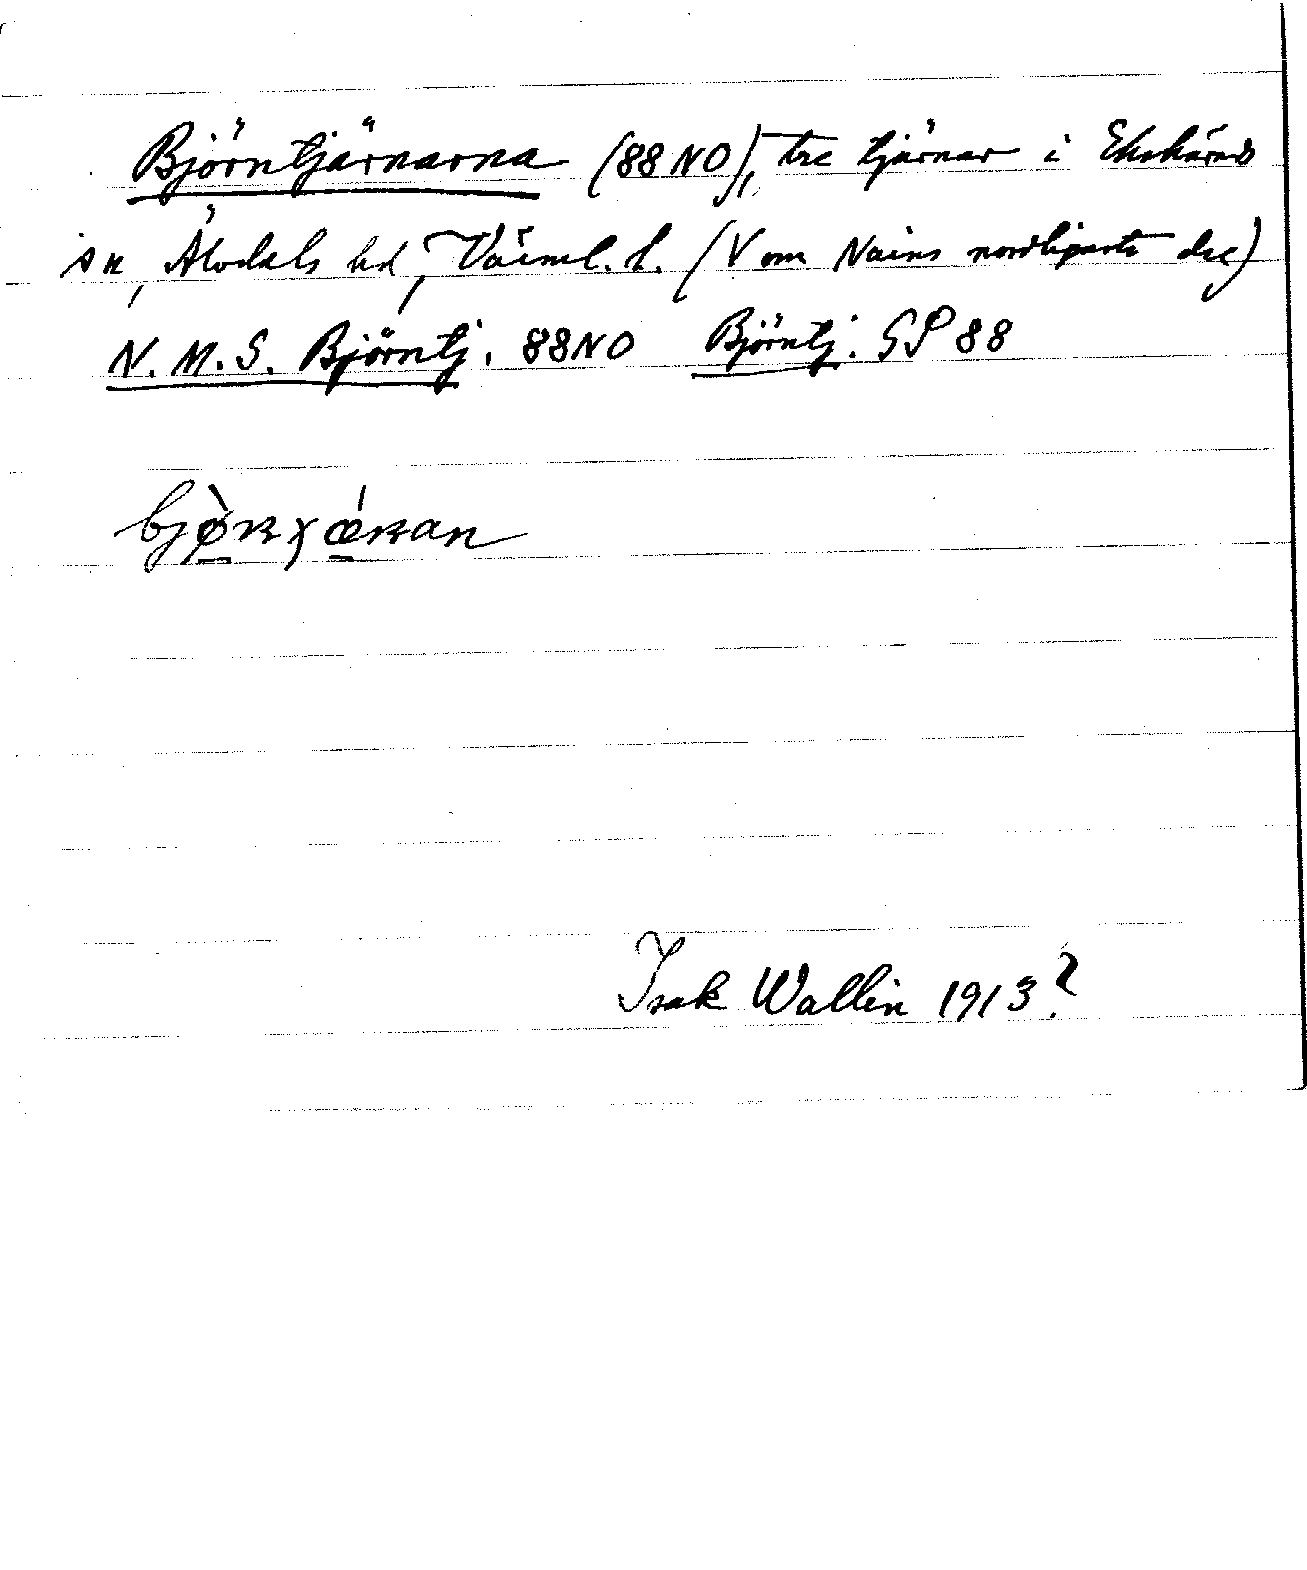 Björntjärnarna (88 NO), tre tjärnar i Ekshärads
sn, Älvdals hd, Värml. l. (V om Nains nordligaste del)
N. M. S. Björntj. 88 NO Björntj. GS 88
Isak Wallin 1913?